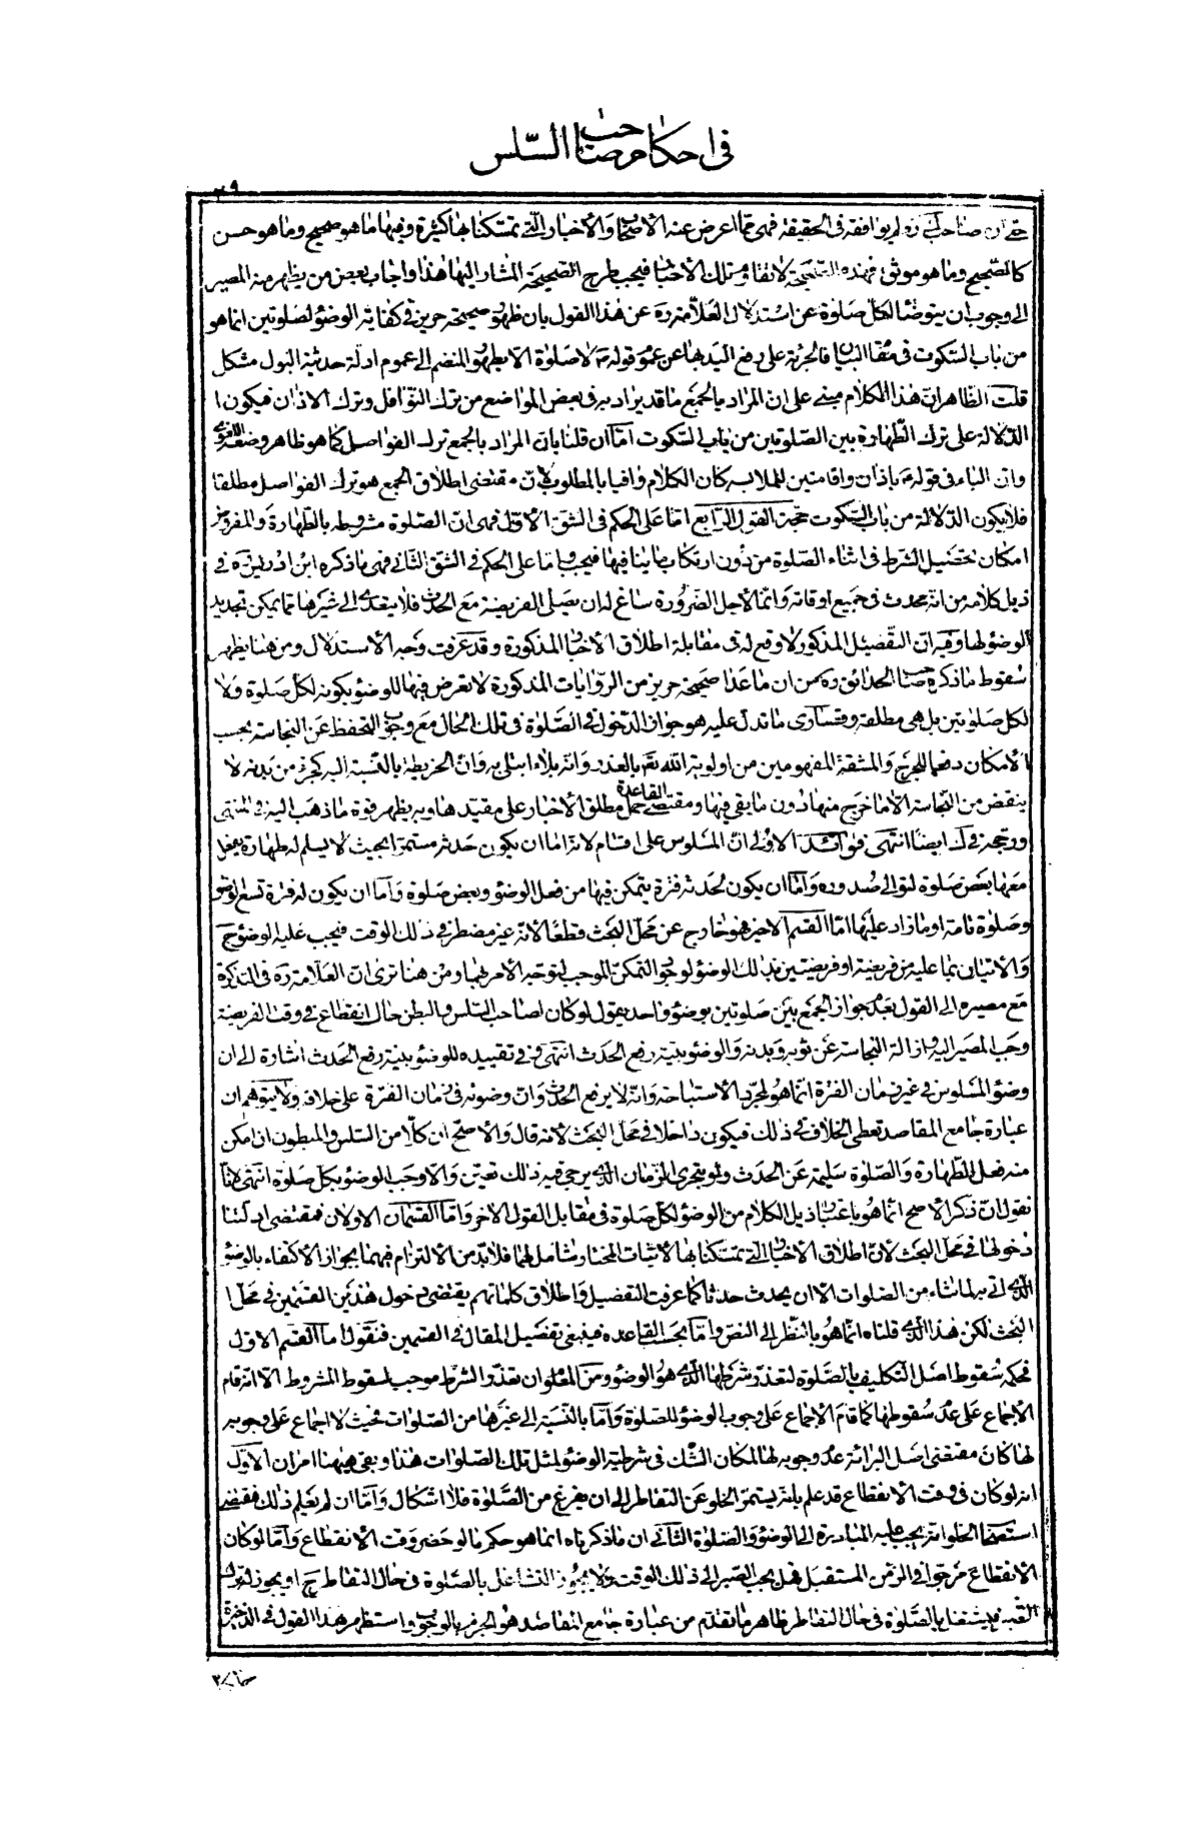 في احكام صاحب السّلس
صاحب لم يوافقه في الحقيقة فهي ممّا اعرض عنه الأصحاب والأخبار الّتي تمسّكنا بها كثيرة وفيها ما هو صحيح وما هو حسن
كالصّحيح وما هو موثق فهذه الصّحيحة لا تقاوم تلك الأخبار فيجب طرح الصّحيحة المشار اليها هذا واجاب بعض من يظهر منه المصير
الى وجوب ان يتوضّأ لكلّ صلوة عن استدلال العلّامة ره عن هذا القول بان ظهور صحيحة حريز في كفاية الوضوء لصلوتين انّما هو
من باب السّكوت في مقام البيان فالجرئة على رفع اليد بها عن عموم قوله لا صلوة الا بطهور المنضم الى عموم ادلّة حدثية البول مشكل
قلت الظّاهر انّ هذا الكلام مبني على ان المراد بالجمع ما قد يراد به في بعض المواضع من ترك النّوافل وترك الاذان فيكون ا
الدّلالة على ترك الطّهارة بين الصّلوتين من باب السّكوت امّا ان قلنا بان المراد بالجمع ترك الفواصل كما هو ظاهر وضعه اللغوي
وانّ الباء في قوله باذان واقامتين للملابسة كان الكلام وافيا بالمطلوب لانّ مقتضى اطلاق الجمع هو ترك الفواصل مطلقا
فلا يكون الدّلالة من باب السّكوت حجة القول الرّابع امّا على الحكم في الشق الأوّل فهي انّ الصّلوة مشروطة بالطّهارة والمفروض
امكان تحصيل الشّرط في اثناء الصّلوة من دون ارتكاب ما ينافيها فيجب وامّا على الحكم في الشّق الثّاني فهي ما ذكره ابن ادريس ره في
ذيل كلامه من انّه محدث في جميع اوقاته وانّما لاجل الضّرورة ساغ له ان يصلّي الفريضة مع الحدث فلا يتعدى الى غيرها ممّا يمكن تجديد
الوضوء لها وفيه انّ التّفصيل المذكور لا وقع له في مقابلة اطلاق الأخبار المذكورة وقد عرفت وجه الأستدلال ومن هنا يظهر
سقوط ما ذكره صاحب الحدائق ره من ان ما عدا صحيحة حريز من الرّوايات المذكورة لا تعرض فيها للوضوء بكونه لكلّ صلوة ولا
لكلّ صلوتين بل هي مطلقة وقصارى ما تدلّ عليه هو جواز الدّخول في الصّلوة في تلك الحال مع وجوب التّحفظ عن النّجاسة بحسب
الأمكان دفعا للحرج والمشقة المفهومين من اولوية الله تع بالعذر وانّه بلاء ابتلى به وانّ الخريطة بالنّسبة اليه كجزء من بدنه لا
ينقض من النّجاسة الّا ما خرج منها دون ما بقي فيها ومقتضى القاعدة حمل مطلق الأخبار على مقيّدها وبه يظهر قوة ما ذهب اليه في المنتهى
ورجحه في ك ايضا انتهى فوائد الأولى انّ المسلوس على اقسام لانّه امّا ان يكون حدثه مستمرّا بحيث لا يسلم له طهارة يفعل
معها بعض صلوة لتوالي صدوره وامّا ان يكون لحدثه فترة يتمكن فيها من فعل الوضوء وبعض صلوة وامّا ان يكون له فترة تسع الوضوء
وصلوة تامة او ما زاد عليها امّا القسم الاخير فهو خارج عن محلّ البحث قطعا لانّه غير مضطر في ذلك الوقت فيجب عليه الوضوء ح
والأتيان بما عليه من فريضة او فريضتين بذلك الوضوء لوجود التمكّن الموجب لتوجّه الأمر بهما ومن هنا ترى انّ العلّامة ره في التّذكرة
مع مصيره الى القول بعدم جواز الجمع بين صلوتين بوضوء واحد يقول لو كان لصاحب السّلس والبطن حال انقطاع في وقت الفريضة
وجب المصير اليه وازالة النّجاسة عن ثوبه وبدنه والوضوء بنيّة رفع الحدث انتهى فانّ في تقييده للوضوء بنية رفع الحدث اشارة الى ان
وضوء المسلوس في غير زمان الفترة انّما هو لمجرّد الأستباحة وانّه لا يرفع الحدث وانّ وضوئه في زمان الفترة على خلافه ولا يتوهم ان
عبارة جامع المقاصد تعطي الخلاف في ذلك فيكون داخلا في محلّ البحث لانه قال والأصح ان كلّا من السّلس والمبطون ان امكن
منه فعل الطّهارة والصّلوة سليمة عن الحدث ولو بتحري الزّمان الّذي يرجى فيه ذلك تعيّن والّا وجب الوضوء لكلّ صلوة انتهى لانّا
نقول انّ ذكر الأصح انّما هو باعتبار ذيل الكلام من الوضوء لكلّ صلوة في مقابل القول الاخر وامّا القسمان الاولان فمقتضى ادلّتنا
دخولهما في محلّ البحث لانّ اطلاق الأخبار الّتي تمسّكنا بها لأثبات المختار شامل لهما فلا بدّ من الألتزام فيهما بجواز الأكتفاء بالوضوء
الّذي اتى به لما شاء من الصّلوات الّا ان يحدث حدثا كما عرفت التّفصيل واطلاق كلماتهم يقتضي دخول هذين القسمين في محلّ ا
البحث لكن هذا الّذي قلناه انّما هو بالنّظر الى النّص وامّا بحسب القاعدة فينبغي تفصيل المقال في القسمين فنقول امّا القسم الاوّل
فحكمه سقوط اصل التّكليف بالصّلوة لتعذّر شرطها الّذي هو الوضوء ومن المعلوم ان تعذّر الشّرط موجب لسقوط المشروط الّا انّه قام
الأجماع على عدم سقوطها كما قام الأجماع على وجوب الوضوء للصّلوة وامّا بالنّسبة الى غيرها من الصّلوات فحيث لا اجماع على وجوبه
لها كان مقتضى اصل البرائة عدم وجوبه لها لمكان الشّك في شرطية الوضوء لمثل تلك الصّلوات هذا وبقي هيهنا امران الأوّل
انّه لو كان في وقت الأنقطاع قد علم بانّه يستمرّ الخلو عن التّقاطر الى ان يفرغ من الصّلوة فلا اشكال وامّا ان لم يعلم ذلك فمقتضى
استصحاب الخلو انّه يجب عليه المبادرة الى الوضوء والصّلوة الثّاني ان ما ذكرناه انّما هو حكم ما لو حضر وقت الأنقطاع وامّا لو كان
الأنقطاع مرجوا في الزّمن المستقبل فهل يجب الصّبر الى ذلك الوقت ولا يجوز التّشاغل بالصّلوة في حال التّقاطر ح او يجوز له
فيتشاغل بالصّلوة في حال التّقاطر ظاهر ما تقدّم من عبارة جامع المقاصد هو الجزم بالوجوب واستظهر هذا القول في الذّخيرة